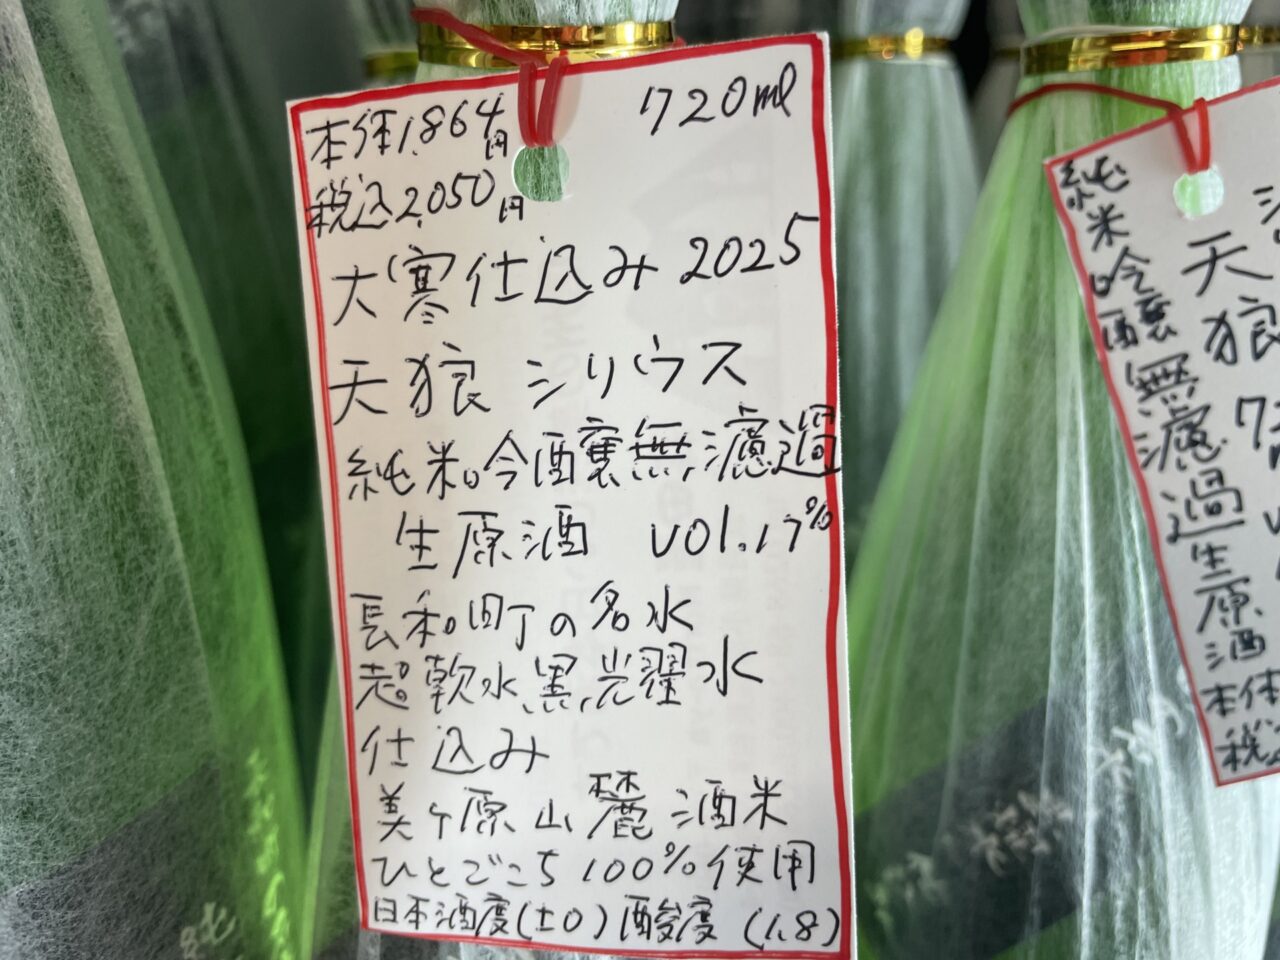 本体1,864円
720ml
税込2,050円
大寒仕込み 2025
天狼 シリウス
純米吟醸無濾過
生原酒 vol.17%
長和町の名水
超軟水黒耀水
仕込み
美ヶ原山麓酒米
ひとごこち100%使用
日本酒度(±0) 酸度(1.8)
純米吟醸無濾過生原酒
天狼
本体
税